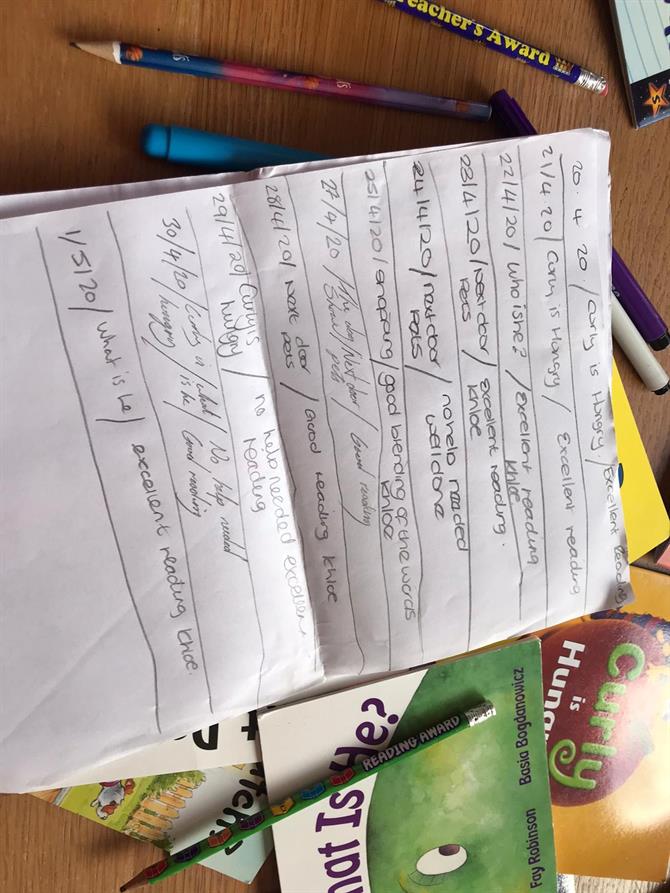 20.4.20 / Curly is Hungry / Excellent Reading
21/4.20 / Curly is Hungry / Excellent reading
22/4/20 / who is he? / Excellent reading
Khloe
23/4/20 / Next door / Excellent reading.
Pets Khloe
24/4/20 / next door / no help needed
Pets well done
25/4/20 / good blending of the words
Khloe
27/4/20 / The dog / Next door / Good reading
Show / pets
28/4/20 / Next door / Good reading Khloe
pets
29/4/20 / Curly is / no help needed excellen
hungy reading
30/4/20 / Curly is / what / No help needed
hungry / is he / Good reading
1/5/20 / what is he / excellent reading Khloe.
Teacher's Award
READING AWARD
Curly
is
Hung
hat Is He?
Fay Robinson
Basia Bogdanowicz